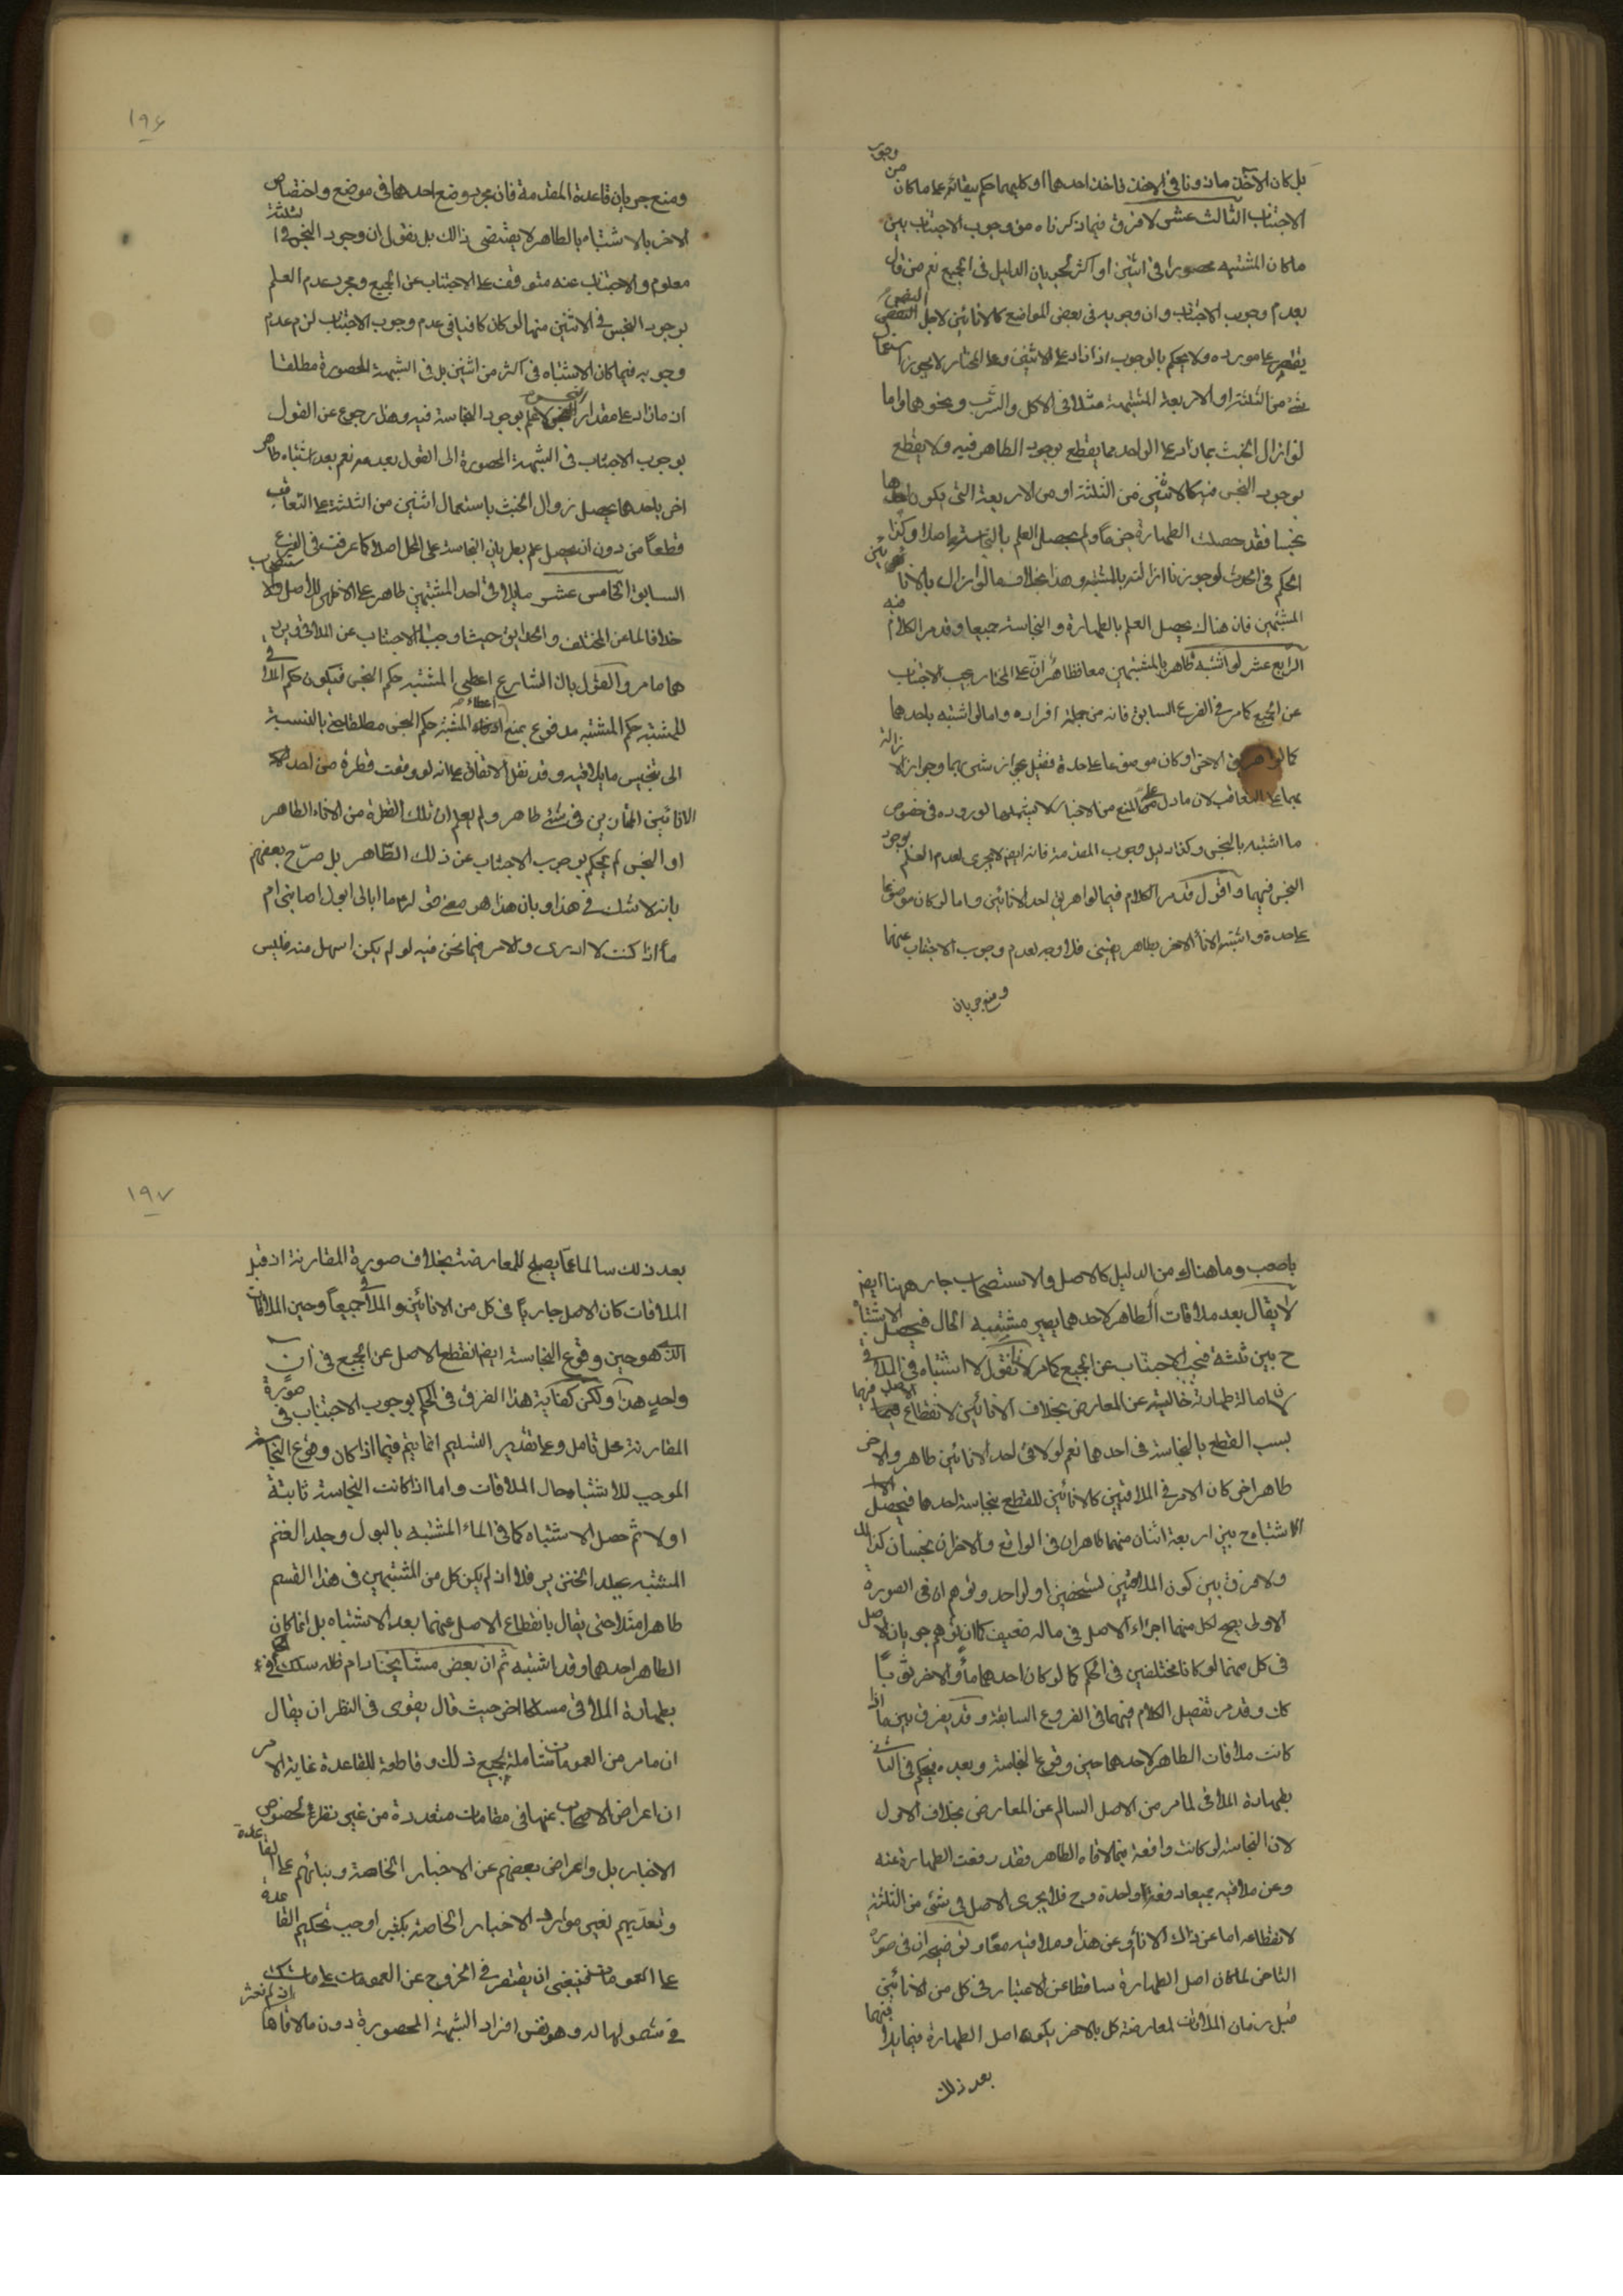 بل كان الاخذ ماذونا فى الاخذ فاخذ احدهما او كليهما حكم ببقائه على ما كان من وجوب
الاجتناب الثالث عشر لا فرق فيما ذكرناه من وجوب الاجتناب بين
ما كان المشتبه محصورا فى اثنين او اكثر لجريان الدليل فى الجميع نعم من قال
بعدم وجوب الاجتناب وان وجوبه فى بعض المواضع كالانائين لاجل النص
يقتصر على مورده ولا يحكم بالوجوب اذا زاد على الاثنين وعلى المختار لا يجوز استعمال
شئ من الثلثة او الاربعة المشتبهة مثلا فى الاكل والشرب ونحوهما واما
لو ازال الخبث بما زاد على الواحد مما يقطع بوجود الطاهر فيه ولا يقطع
بوجود النجس فيه كالاثنين من الثلثة او من الاربعة التى يكون احدها
نجسا فقد حصلت الطهارة جزما ولم يحصل العلم بالنجاسة اصلا وكذا
الحكم فى الحدث لو جوزنا ازالته بالمشتبه وهذا بخلاف ما لو ازال بالانائين
المشتبهين فان هناك يحصل العلم بالطهارة والنجاسة جميعا وقد مر الكلام فيه
الرابع عشر لو اشتبه طاهر بالمشتبهين معا فظاهر ان على المختار يجب الاجتناب
عن الجميع كما مر فى الفرع السابق فانه من جملة افراده واما لو اشتبه باحدهما
كما لو اهريق الاخر او كان موضوعا على حدة فقيل بجواز شربهما وجواز الازالة
بهما على التعاقب لان ما دل على المنع من الاخبار لا يشملهما لوروده فى خصوص
ما اشتبه بالنجس وكذا دليل وجوب المقدمة فانه ايضا لا يجرى لعدم العلم بوجود
النجس فيهما واقول قد مر الكلام فيما لو اهريق احد الانائين واما لو كان موضوعا
على حدة واشتبه الاناء الاخر بطاهر يقينى فلا وجه لعدم وجوب الاجتناب عنهما
ومنع جريان
١٩٦
ومنع جريان قاعدة المقدمة فان مجرد وضع احدهما فى موضع واختصاص
الاخر بالاشتباه بالطاهر لا يقتضى ذالك بل نقول ان وجود النجس فى الثلثة
معلوم والاجتناب عنه متوقف على الاجتناب عن الجميع ومجرد عدم العلم
بوجود النجس فى الاثنين منهما لو كان كافيا فى عدم وجوب الاجتناب لزم عدم
وجوبه فيما كان الاشتباه فى اكثر من اثنين بل فى الشبهة المحصورة مطلقا
اذ ما زاد على مقدار النجس لا علم بوجود النجاسة فيه وهذا رجوع عن القول
بوجوب الاجتناب فى الشبهة المحصورة الى القول بعدمه نعم بعد اشتباه طاهر
اخر باحدهما يحصل زوال الخبث باستعمال اثنين من الثلثة على التعاقب
قطعا من دون ان يحصل علم بطريان النجاسة على المحل اصلا كما عرفت فى الفرع
السابق الخامس عشر ما يلاقى احد المشتبهين طاهر على الاظهر للاصل والاستصحاب
خلافا لما عن المختلف والحدايق حيث اوجبا الاجتناب عن الملاقى ويردهما
هما ما مر والقول بان الشارع اعطى المشتبه حكم النجس فيكون حكم الملاقى
للمشتبه حكم المشتبه مدفوع بمنع اعطاء المشتبه حكم النجس مطلقا حتى بالنسبة
الى تنجيس ما يلاقيه وقد نقل الاتفاق على انه لو وقعت قطرة من احد
الانائين المحاذيين فى شئ طاهر ولم يعلم ان تلك القطرة من الاناء الطاهر
او النجس لم يحكم بوجوب الاجتناب عن ذلك الطاهر بل صرح بعضهم
بانه لا شك فى هذا وبان هذا هو معنى قوله ما ابالى ابول اصابنى ام
ماء اذا كنت لا ادرى والامر فيما نحن فيه لو لم يكن اسهل منه فليس
باصعب وما هناك من الدليل كالاصل والاستصحاب جار ههنا ايضا
لا يقال بعد ملاقات الطاهر لاحدهما يصير مشتبه الحال فيحصل الاشتباه
ح بين ثلثة فيجب الاجتناب عن الجميع كما مر لانا نقول لا اشتباه فى الملاقى
لان اصالة طهارته خالية عن المعارض بخلاف الانائين لانقطاع الاصل فيهما
بسبب القطع بالنجاسة فى احدهما نعم لو لاقى احد الانائين طاهر والاخر
طاهر اخر كان الامر فى الملاقيين كالانائين للقطع بنجاسة احدهما فيحصل
الاشتباه ح بين اربعة اثنان منهما طاهران فى الواقع والاخران نجسان كذلك
ولا فرق بين كون الملاقيين لشخصين او لواحد وتوهم ان فى الصورة
الاولى يصح لكل منهما اجراء الاصل فى ماله ضعيف كما ان توهم جريان الاصل
فى كل منهما لو كانا مختلفين فى الحكم كما لو كان احدهما ماء والاخر ثوبا
كك وقد مر تفصيل الكلام فيهما فى الفروع السابقة وقد يفرق بين ما اذا
كانت ملاقات الطاهر لاحدهما حين وقوع النجاسة وبعده فيحكم فى الثانى
بطهارة الملاقى لما مر من الاصل السالم عن المعارض بخلاف الاول
لان النجاسة لو كانت واقعة فيما لاقاه الطاهر فقد رفعت الطهارة عنه
وعن ملاقيه جميعا دفعة واحدة وح فلا يجرى الاصل فى شئ من الثلثة
لانقطاعه اما عن ذاك الاناء او عن هذا وملاقيه معا وتوضيحه ان فى صورة
التاخر لما كان اصل الطهارة ساقطا عن الاعتبار فى كل من الانائين
قبل زمان الملاقات لمعارضة كل بالاخر يكون اصل الطهارة فيما يلاقيهما
بعد ذلك
١٩٧
بعد ذلك سالما عما يصلح للمعارضة بخلاف صورة المقارنة اذ قبل
الملاقات كان الاصل جاريا فى كل من الانائين والملاقى جميعا وحين الملاقات
الذى هو حين وقوع النجاسة ايضا انقطع الاصل عن الجميع فى ان
واحد هذا ولكن كفاية هذا الفرق فى الحكم بوجوب الاجتناب فى صورة
المقارنة محل تامل وعلى تقدير التسليم انما يتم فيما اذا كان وقوع النجاسة
الموجب للاشتباه حال الملاقات واما اذا كانت النجاسة ثابتة
اولا ثم حصل الاشتباه كما فى الماء المشتبه بالبول وجلد الغنم
المشتبه بجلد الخنزير فلا اذ لم يكن كل من المشتبهين فى هذا القسم
طاهرا مثلا حتى يقال بانقطاع الاصل عنهما بعد الاشتباه بل انما كان
الطاهر احدهما وقد اشتبه ثم ان بعض مشايخنا دام ظله
بطهارة الملاقى مسلكا اخر حيث قال يقوى فى النظر ان يقال
ان ما مر من العمومات شاملة لجميع ذلك وقاطعة للقاعدة غاية الامر
ان اعراض الاصحاب عنها فى مقامات متعددة من غير نظر لخصوص
الاخبار بل واعراض بعضهم عن الاخبار الخاصة وبنائهم على القاعدة
وتعديهم لغير موارد الاخبار الخاصة بكثير اوجب تحكيم القاعدة
على العمومات فينبغى ان يقتصر فى الخروج عن العمومات على ما شك
فى شمولها له وهو نفس افراد الشبهة المحصورة دون ما لاقاها